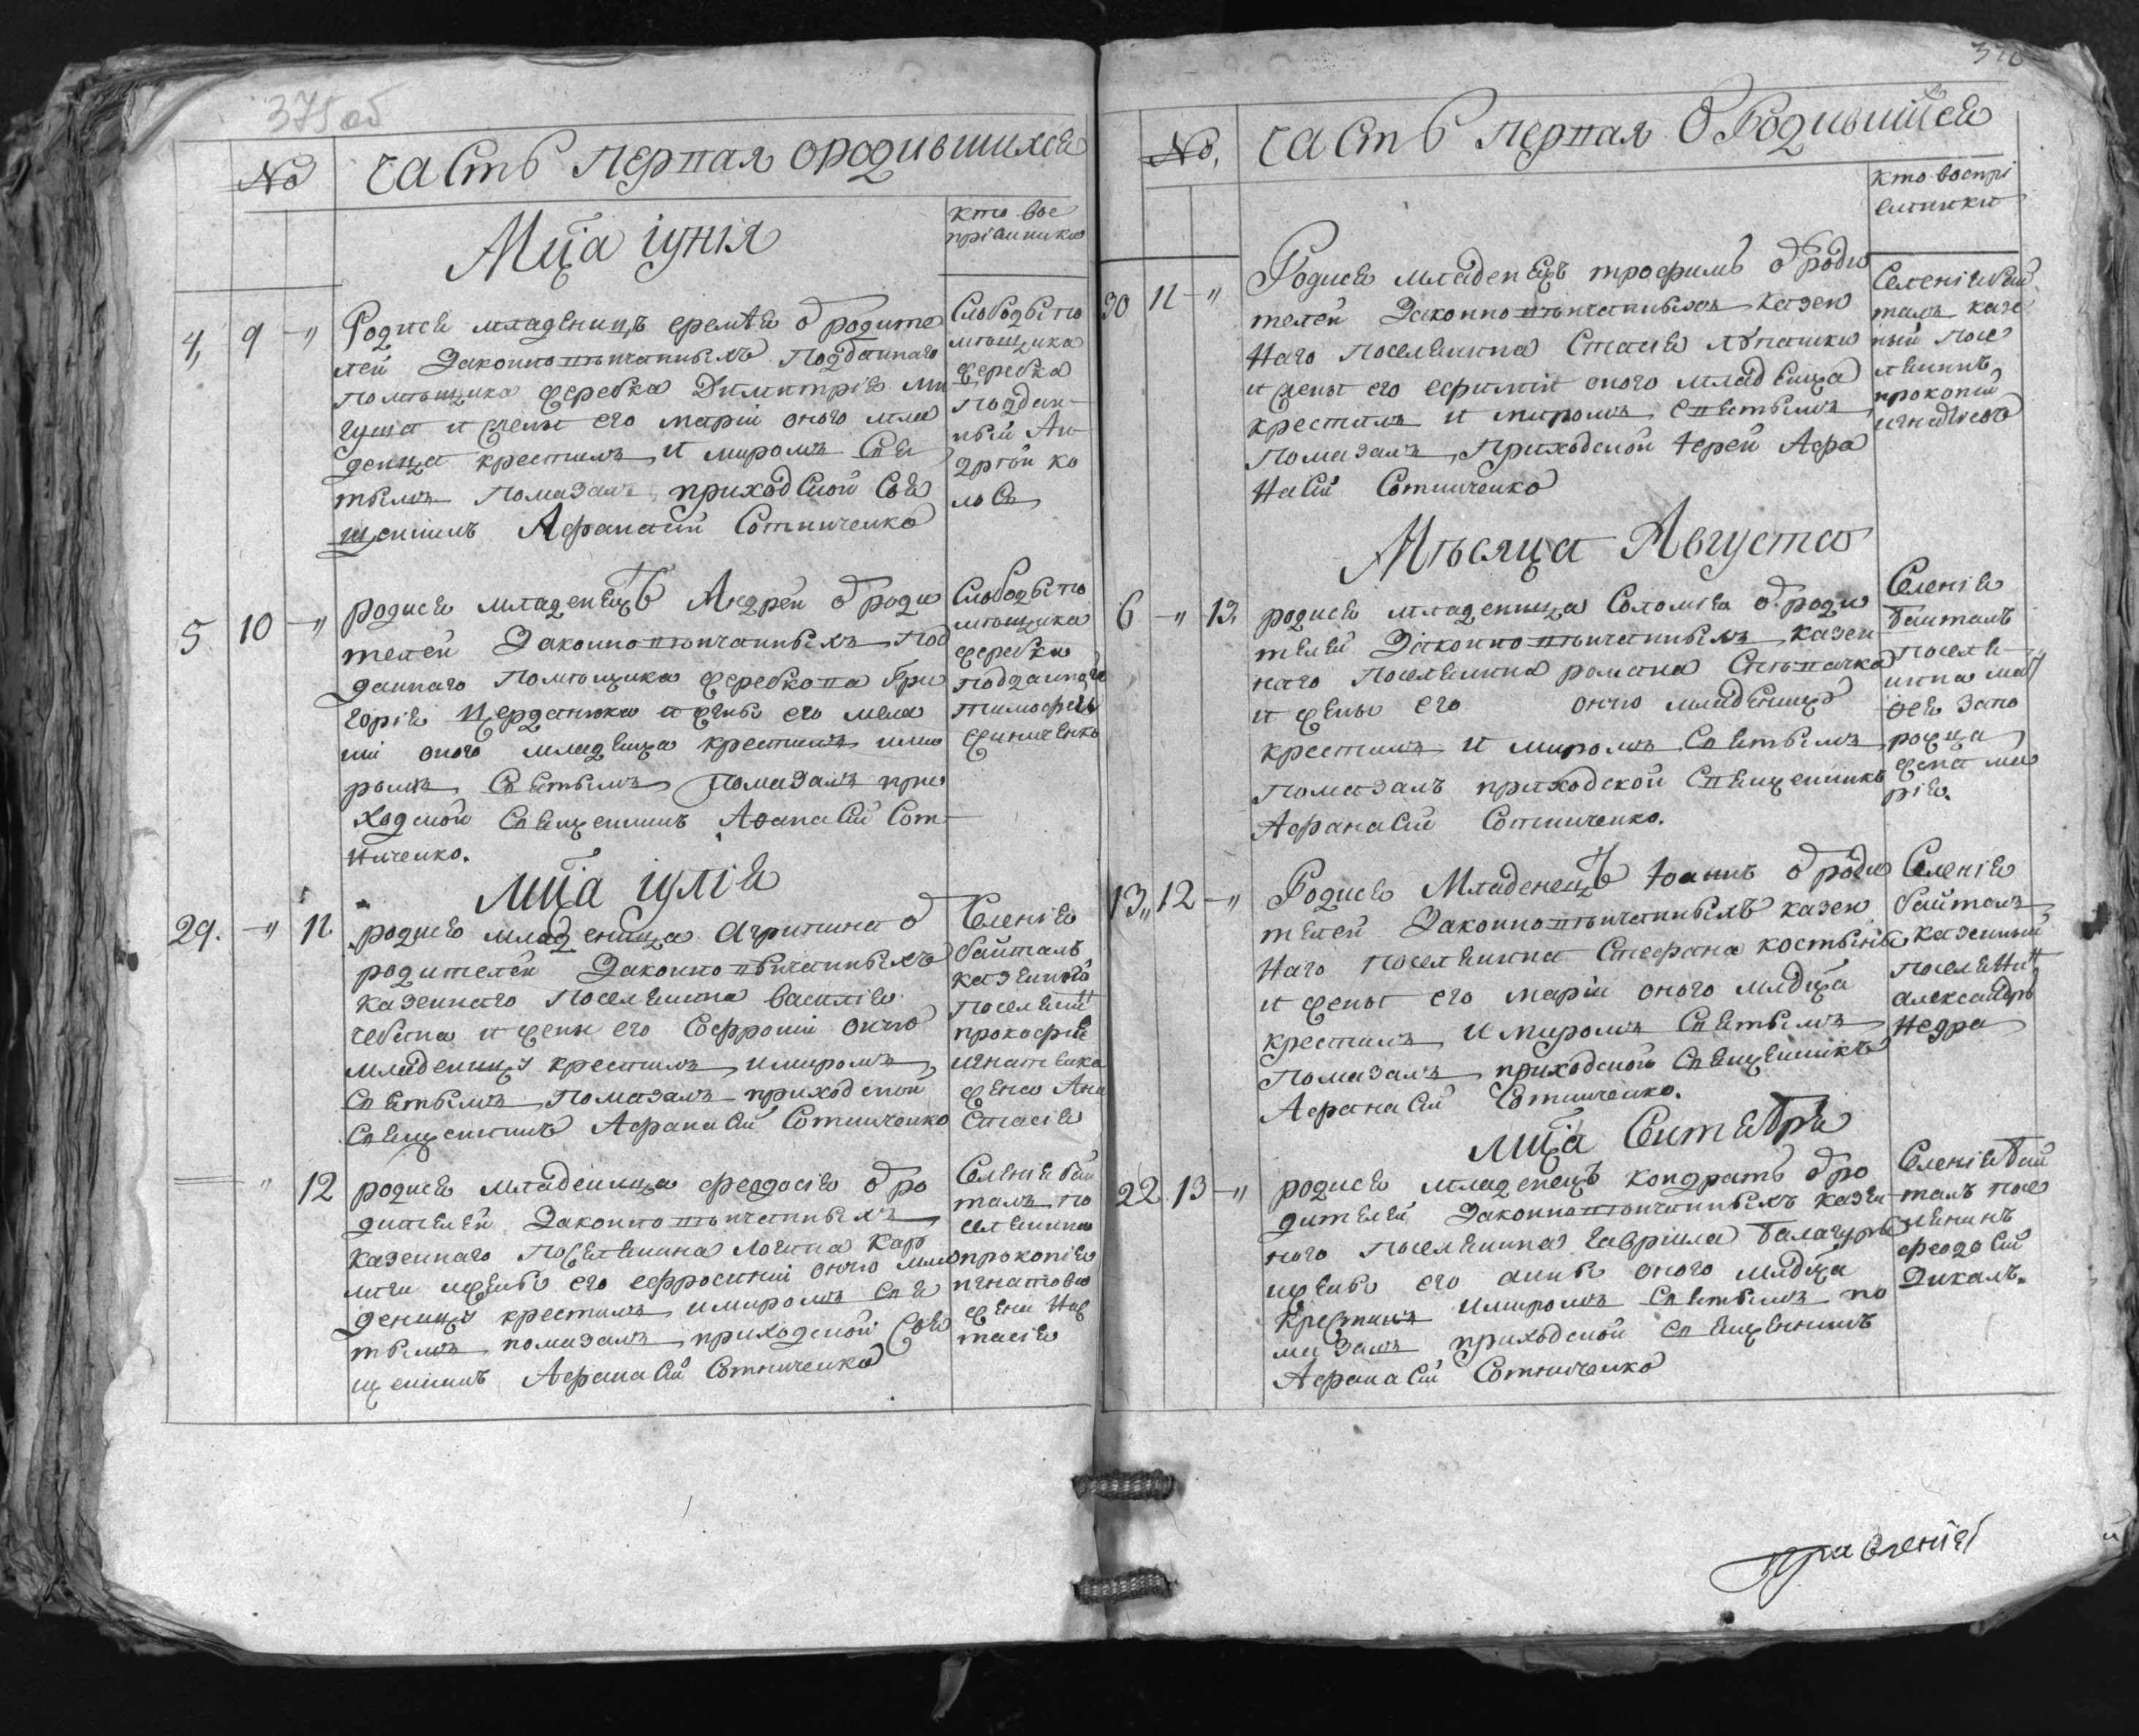 375 об
№ часть первая о родившихся
Мца іунія
кто вос
пріемники
4, 9 - "
Родися младенецъ еремѣя ѿ родите
лей Законновѣнчанныхъ Подданнаго
помѣщика щербка Димитрія
и жены его маріи оного мла
денца крестилъ и миромъ Свя
тымъ Помазалъ приходской Свя
щенникъ Афанасий Сотниченко
Слободы по
мѣщика
щербка
поддан-
ный Ан
дрѣй ко
5. 10 - "
родися младенецъ Андрей ѿ роди
телей Законновѣнчанныхъ Под
даннаго Помѣщика щербкова Гри
горія и жены его мела
ніи оного младенца крестилъ и ми
ромъ Святымъ Помазалъ при
ходской Священникъ Афанасий Сот
ниченко.
Слободы по
мѣщика
щербка
подданнаго
тимофей
Мца іуліа
29. - " 11
родися младеница Агрипина ѿ
родителей Законновѣнчанныхъ
казеннаго Поселянина василія
чебана и жены его Софроніи оную
младеницу крестилъ и миромъ
Святымъ Помазалъ приходской
Священникъ Афанасий Сотниченко
Селенія
байталъ
казенный
поселянин
игнатенка
жена Ана
стасія
" 12
родися младеница феодосія ѿ ро
дителей Законновѣнчанныхъ
казеннаго Поселянина Логина Кар
и жены его ефросиніи оную мла
деницу крестилъ и миромъ Свя
тымъ помазалъ приходской Свя
щенникъ Афанасий Сотниченко
Селенія бай
талъ по
селянина
прокопія
игнатова
жена Нас
тасія
376
№. часть первая О Родившихся
кто воспрі
емники
30 11 - "
Родися младенецъ трофимъ ѿ роди
телей Законновѣнчанныхъ казен
наго поселянина Стасія
и жены его ефиміи оного младенца
крестилъ и миромъ святымъ
Помазалъ Приходской Іерей Афа
насий Сотниченко
Селенія бай
талъ казе
ный посе
лянинъ
прокопій
Мѣсяца Августа
6 - " 13.
родися младенница Соломія ѿ роди
телей Законновѣнчанныхъ казен
наго поселянина романа
и жены его оную младеницу
крестилъ и миромъ Святымъ
Помазалъ приходской Священникъ
Афанасий Сотниченко.
Селенія
байталъ
поселя
нина мат
фея запо
рожца
жена ма
рія.
13 „ 12 - "
Родися Младенецъ Іоаннъ ѿ роди
телей Законновѣнчанныхъ казен
наго поселянина Стефана
и жены его маріи оного младца
крестилъ и миромъ Святымъ
Помазалъ приходской Священникъ
Афанасий Сотниченко.
Селенія
байталъ
казенный
поселянин
александръ
недра
Мца Сентября
22 13 - "
родися младенецъ кондратъ ѿ ро
дителей Законновѣнчанныхъ казен
ного поселянина гавріила балагуры
и жены его анны оного младца
крестилъ и миромъ Святымъ по
мазалъ приходской Священникъ
Афанасий Сотниченко
Селенія бай
талъ посе
лянинъ
феодосій
Дикалъ.
правленія